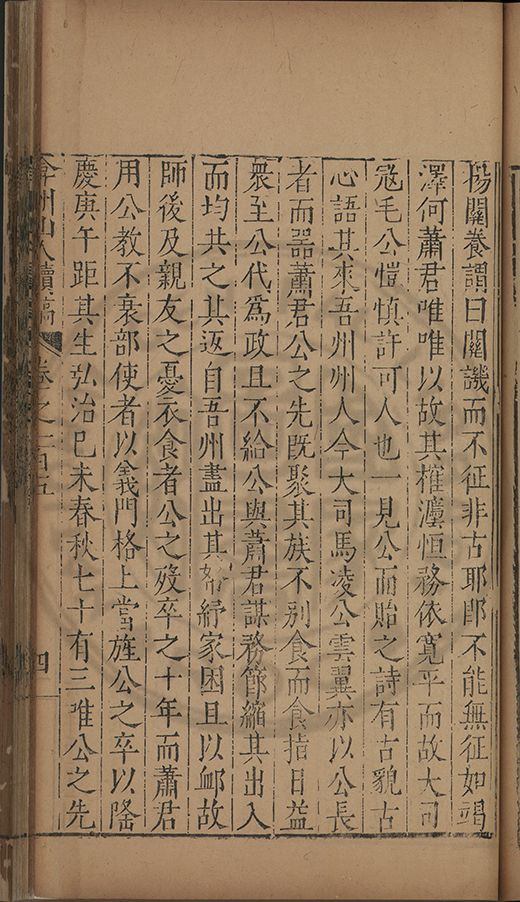 揚關養謂曰關譏而不征非古耶卽不能無征如竭
澤何蕭君唯唯以故其榷滻恒務依寬平而故大司
寇毛公愷慎許可人也一見公而貽之詩有古貌古
心語其來吾州州人今大司馬凌公雲翼亦以公長
者而噐蕭君公之先既聚其族不别食而食指日益
衆至公代爲政且不給公與蕭君謀務節縮其出入
而均共之其返自吾州盡出其帑紓家困且以卹故
師後及親友之憂衣食者公之歿卒之十年而蕭君
用公教不衰部使者以義門格上當旌公之卒以隆
慶庚午距其生弘治巳未春秋七十有三唯公之先
弇州山人續稿 卷之一百五 四